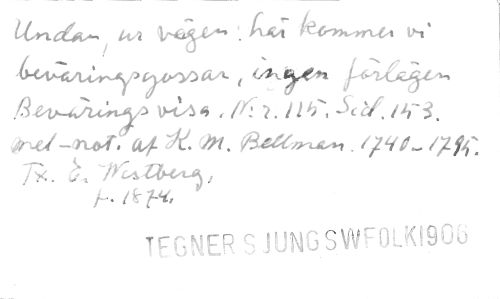 Undan, ur vägen: här kommer vi
beväringsgossar, ingen förlägen
Beväringsvisa. N:r. 115. Sid. 153.
mel-not. af K. M. Bellman. 1740-1795.
Tx. E. Westberg,
f. 1874.
TEGNER SJUNGSWFOLK1906